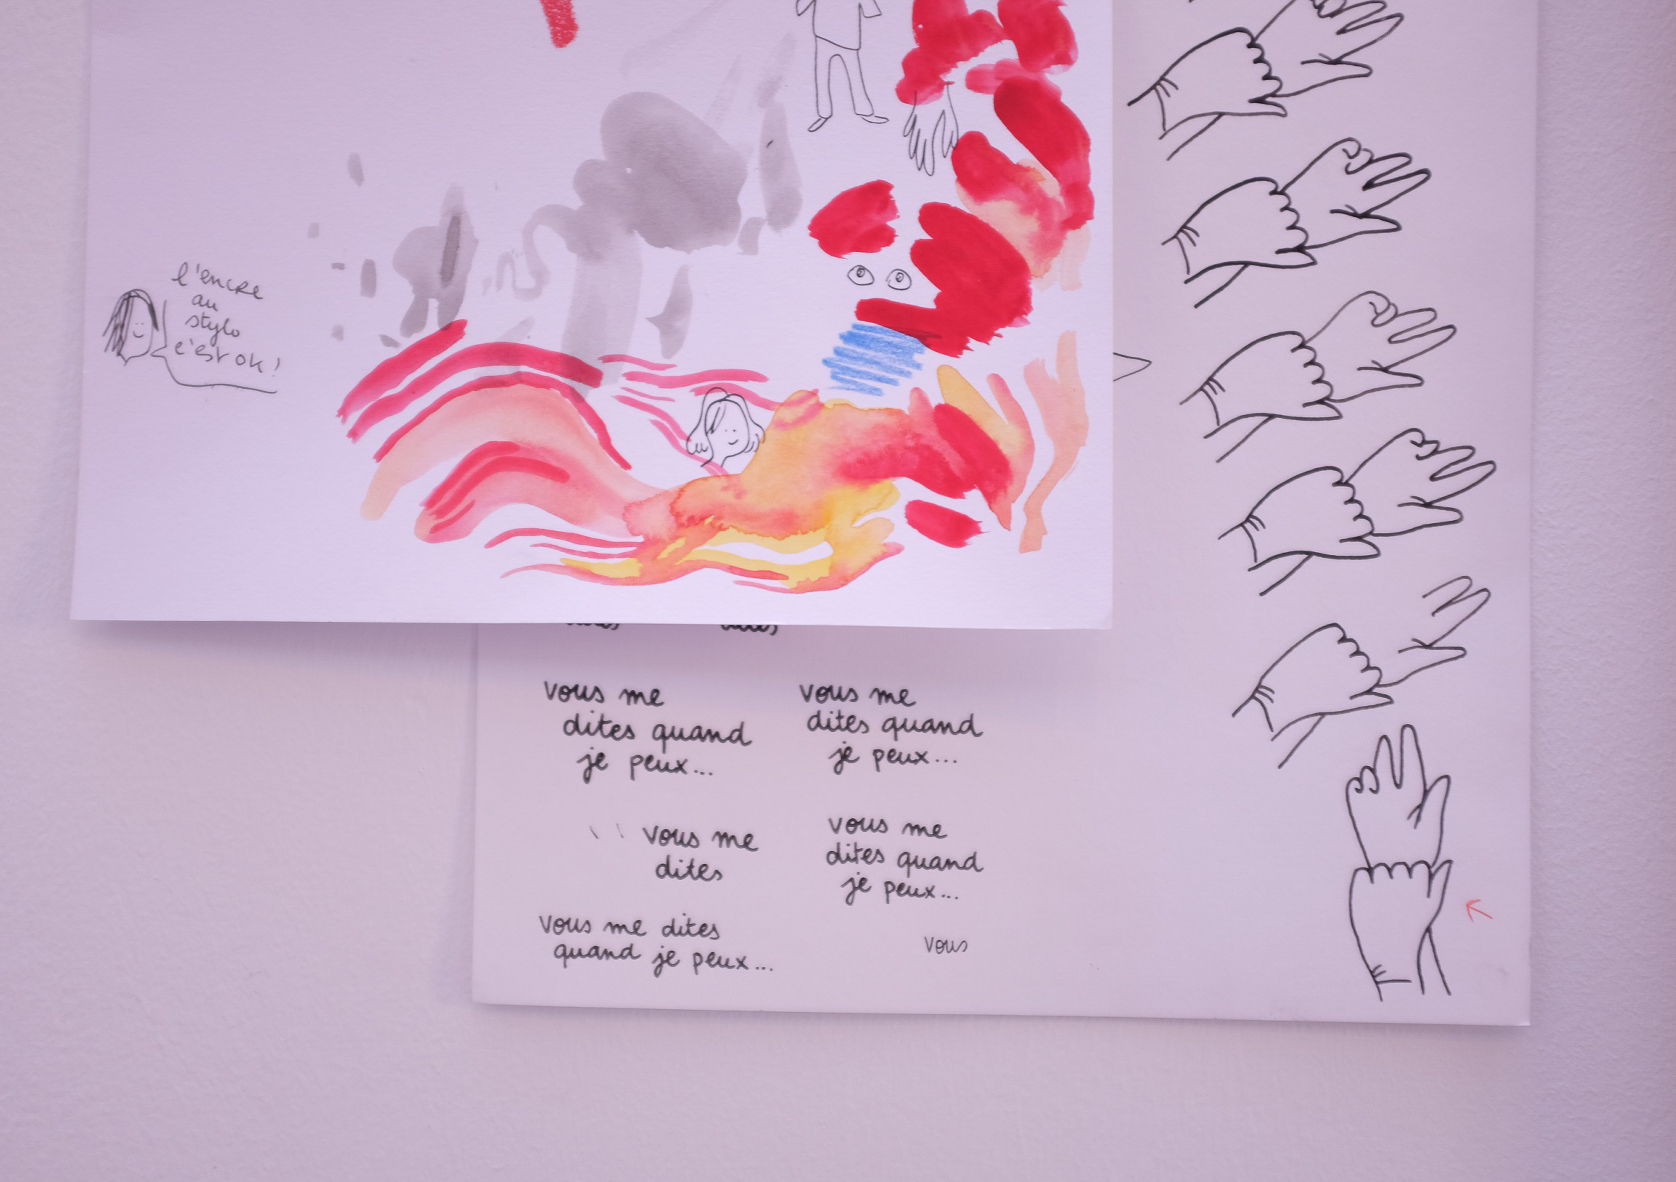 l'encre
au
stylo
c'est ok!
vous me
dites quand
je peux...
vous me
dites quand
je peux...
vous me
dites
vous me
dites quand
je peux...
vous me dites
quand je peux...
vous